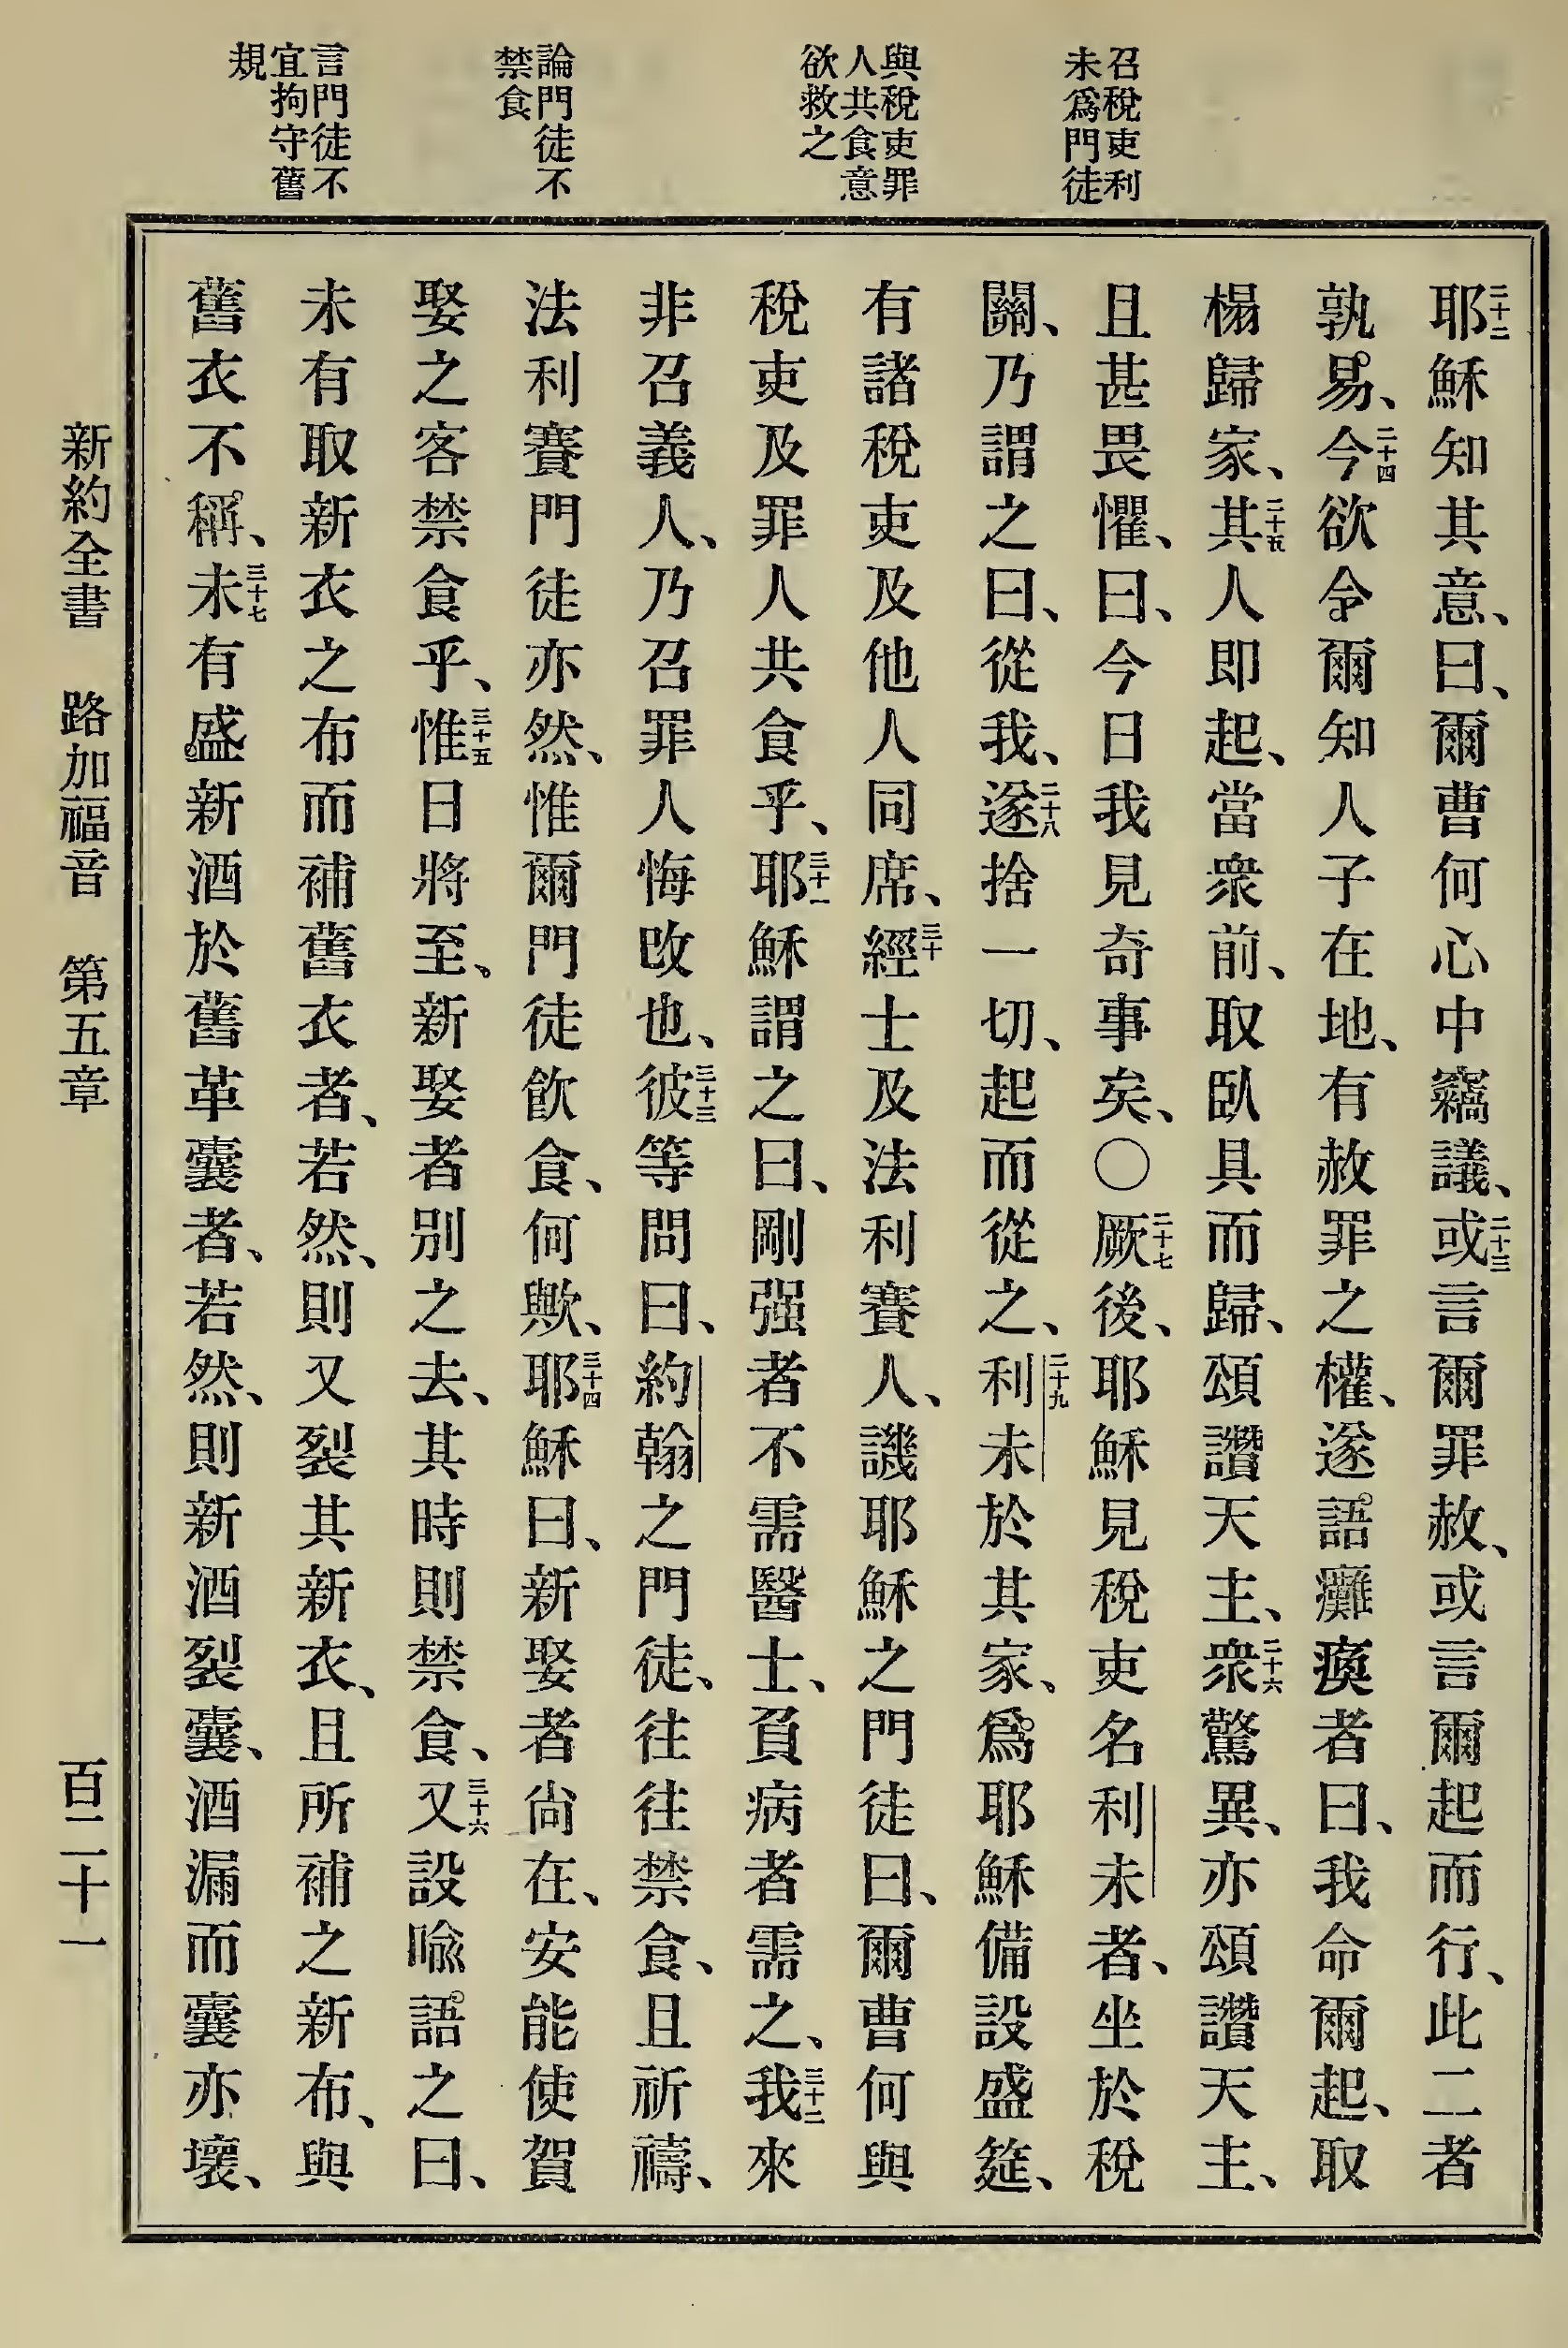 召稅吏利
未爲門徒
與稅吏罪
人共食意
欲救之
論門徒不
禁食
言門徒不
宜拘守舊
規
二十二耶穌知其意、曰、爾曹何心中竊議、二十三或言爾罪赦、或言爾起而行、此二者
孰易、二十四今欲令爾知人子在地、有赦罪之權、遂語癱瘓者曰、我命爾起、取
榻歸家、二十五其人即起、當衆前、取臥具而歸、頌讚天主、二十六衆驚異、亦頌讚天主、
且甚畏懼、曰、今日我見奇事矣、〇二十七厥後、耶穌見稅吏名利未者、坐於稅
關、乃謂之曰、從我、二十八遂捨一切、起而從之、二十九利未於其家、爲耶穌備設盛筵、
有諸稅吏及他人同席、三十經士及法利賽人、譏耶穌之門徒曰、爾曹何與
稅吏及罪人共食乎、三十一耶穌謂之曰、剛强者不需醫士、負病者需之、三十二我來
非召義人、乃召罪人悔改也、三十三彼等問曰、約翰之門徒、往往禁食、且祈禱、
法利賽門徒亦然、惟爾門徒飮食、何歟、三十四耶穌曰、新娶者尙在、安能使賀
娶之客禁食乎、三十五惟日將至、新娶者別之去、其時則禁食、三十六又設喩語之曰、
未有取新衣之布而補舊衣者、若然、則又裂其新衣、且所補之新布、與
舊衣不稱、三十七未有盛新酒於舊革囊者、若然、則新酒裂囊、酒漏而囊亦壞、
新約全書 路加福音 第五章 百二十一